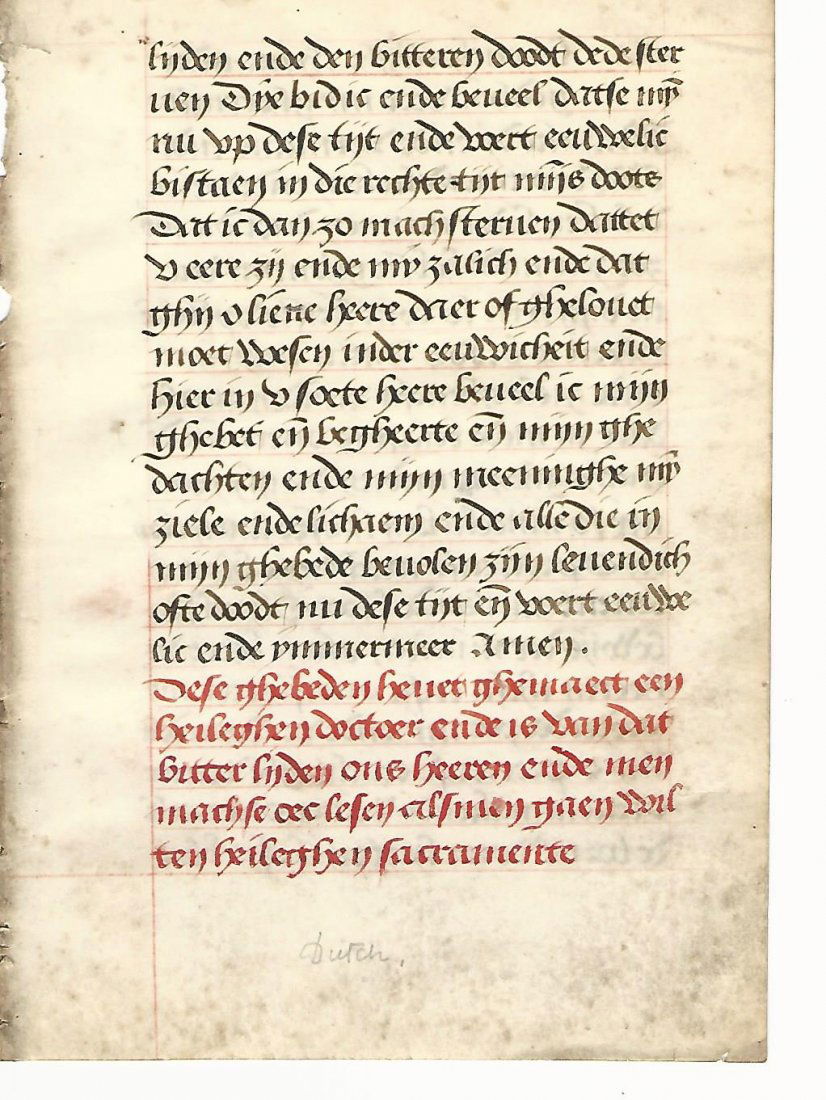 lijden ende den bitteren doodt dede ster
uen Dye bid ic ende beueel datse mȳ
nu vp dese tijt ende voert eeuwelic
bistaen in die rechte tijt mijs doots
Dat ic dan zo mach steruen dattet
v eere zij ende my zalich ende dat
ghij o lieue heere daer of ghelouet
moet wesen inder eeuwicheit ende
hier in v soete heere beueel ic mijn
ghebet eñ begheerte eñ mijn ghe
dachten ende mijn meeninghe mȳ
ziele ende lichaem ende allē die in
mijn ghebede beuolen zijn leuendich
ofte doodt nu dese tijt eñ voert eeuwe
lic ende ymmermeer Amen.
Dese ghebeden heuet ghemaect een
heileghen doctoer ende is van dat
bitter lijden ons heeren ende men
machse oec lesen alsmen gaen wil
ten heileghen sacramente
Dutch.